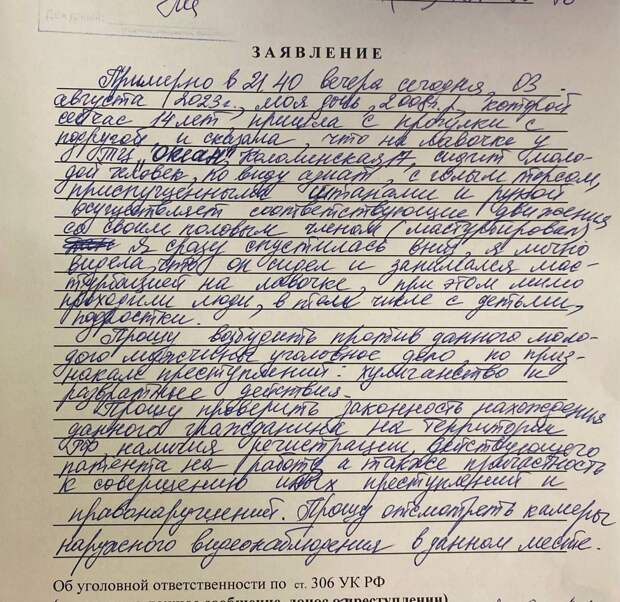 ЗАЯВЛЕНИЕ
Примерно в 21 40 вечера сегодня, 03
августа 2023г., моя дочь, 2008г.р., которой
сейчас 14 лет, пришла с прогулки с
подругой, и сказала, что на лавочке у
ТЦ "Океан" Коломинская, сидит моло-
дой человек, по виду азиат, с голым торсом,
приспущенными штанами и рукой
осуществляет соответствующие движения
со своим половым членом (мастурбировал)
я сразу спустилась вниз, я лично
видела, что он сидел и занимался мас-
турбацией на лавочке, при этом мимо
проходили люди, в том числе с детьми,
подростки.
Прошу возбудить против данного моло-
дого мужчины уголовное дело, по приз-
накам преступлений: хулиганство и
развратные действия.
Прошу проверить законность нахождения
данного гражданина на территории
РФ, наличия регистрации, действующего
патента на работу а также причастность
к совершению иных преступлений и
правонарушений. Прошу отсмотреть камеры
наружного видеонаблюдения в данном месте.
Об уголовной ответственности по ст. 306 УК РФ